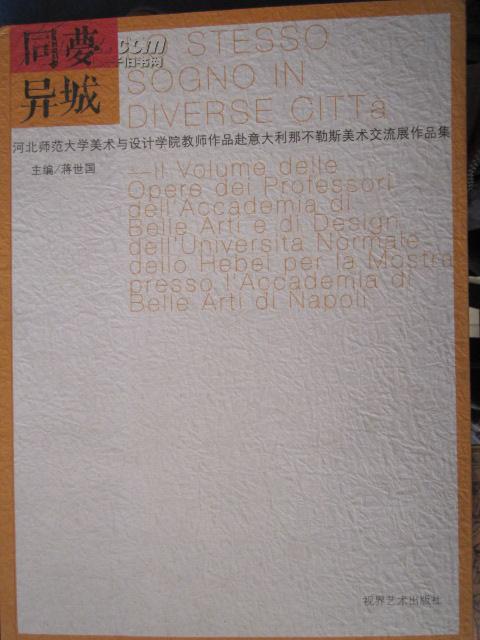 同夢
异城
STESSO
SOGNO IN
DIVERSE CITTa
河北师范大学美术与设计学院教师作品赴意大利那不勒斯美术交流展作品集
主编/蒋世国
—Il Volume delle
Opere dei Professori
dell'Accademia di
Belle Arti e di Design
dell'Universita Normale
dello Hebei per la Mostra
presso l'Accademia di
Belle Arti di Napoli
视界艺术出版社